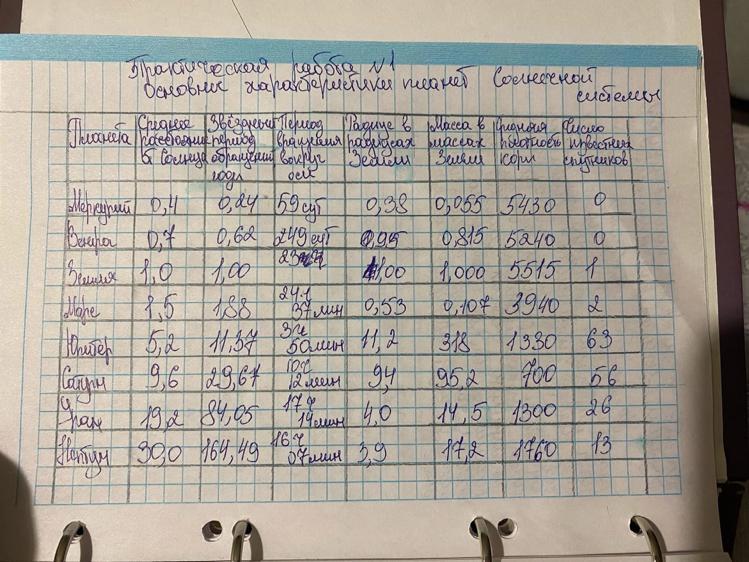 Практическая работа №1
Основние характеристики планет Солнечной
системы
Планета Среднее расстояние от Солнца Звёздный период обращения годы Период вращения вокруг оси Радиус в радиусах Земли Масса в массах Земли Средняя плотность кг/м Число известных спутников
Меркурий 0,4 0,24 59 сут 0,38 0,055 5430 0
Венера 0,7 0,62 249 сут 0,95 0,815 5240 0
Земля 1,0 1,00 1,00 1,000 5515 1
Марс 1,5 1,88 24ч 37 мин 0,53 0,107 3940 2
Юпитер 5,2 11,37 50 мин 11,2 318 1330 63
Сатурн 9,6 29,67 10ч 12 мин 9,4 95,2 700 56
Уран 19,2 84,05 17ч 14 мин 4,0 14,5 1300 26
Нептун 30,0 164,49 16ч 07 мин 3,9 17,2 1760 13